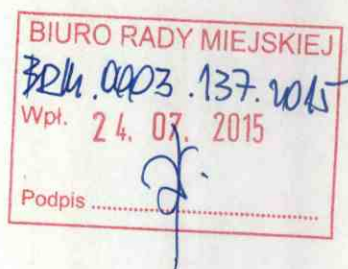 BIURO RADY MIEJSKIEJ
BRM.0003.137.2015
Wpł. 24. 07. 2015
Podpis ....................